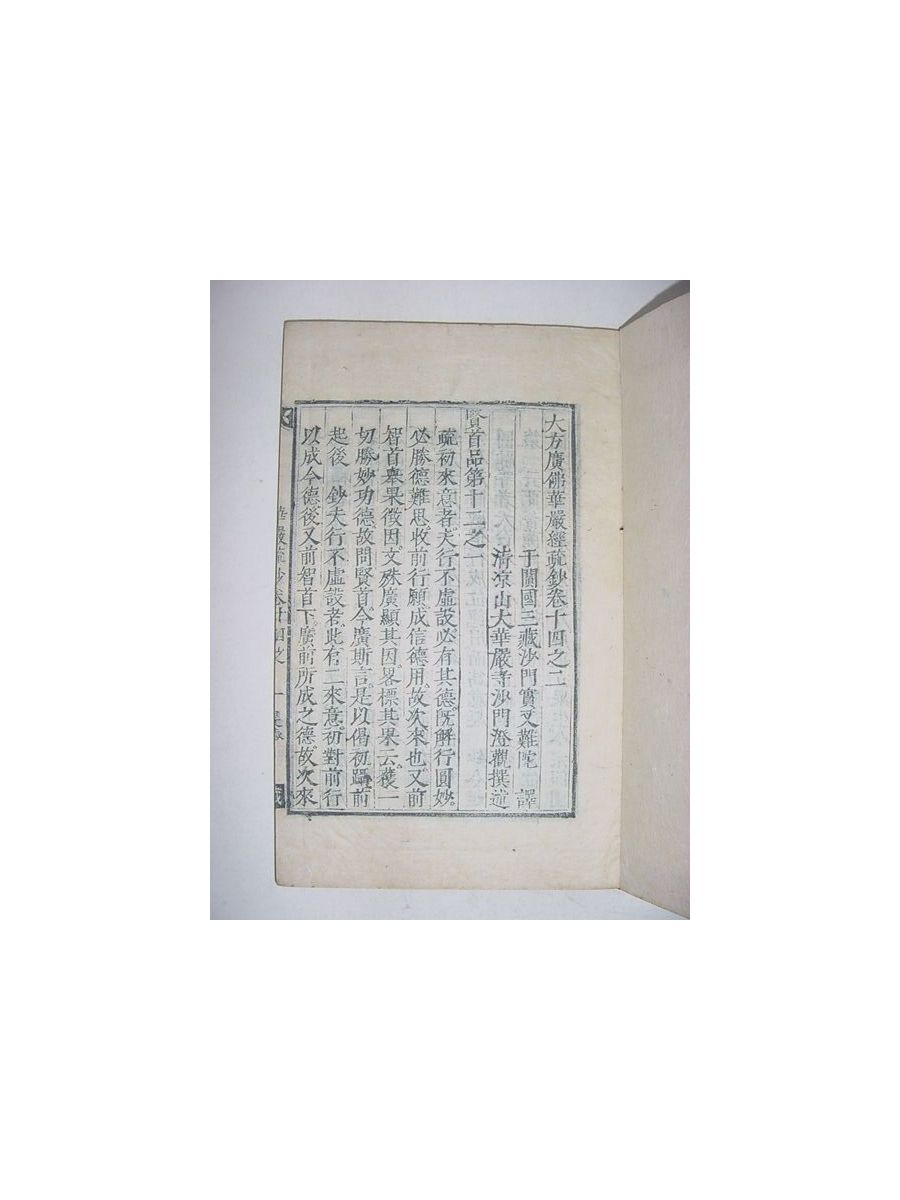 大方廣佛華嚴經疏鈔卷十四之二
于闐國三藏沙門實叉難陀 譯
清凉山大華嚴寺沙門澄觀撰述
賢首品第十二之一
疏初來意者夫行不虛設必有其德既解行圓妙
必勝德難思收前行願成信德用故次來也又前
智首舉果徵因文殊廣顯其因畧標其果云獲一
切勝妙功德故問賢首令廣斯言是以偈初躡前
起後 鈔夫行不虛設者此有二來意初對前行
以成今德後又前智首下廣前所成之德故次來
華嚴疏鈔卷十四之 一